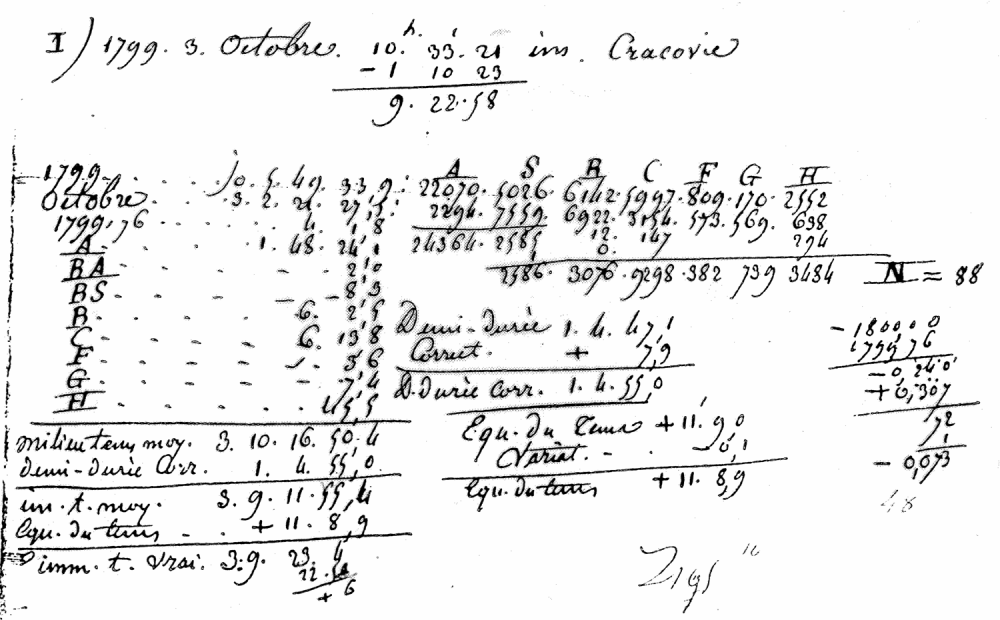 I) 1799. 3. Octobre. 10.h 33.' 21 im. Cracovie
- 1 10 23
9. 22. 58
A S B C F G H
1799 . . . . . j0. 5. 49. 33,9. 22070. 5026. 6142. 5997. 809. 170. 2552
Octobre . . . . 3. 2. 21. 27,5. 2294. 7559. 6922. 3154. 573. 569. 638
1799,76 . . . . 4. 1,8 24364. 2585 12. 147 294
A . . . . 1. 48. 24,1 1 0.
BA . . . . 2,0 2586. 3076. 9298. 382 739 3484 N = 88
BS . . . . 8,3
B . . . . 6. 2,5 Demi-durée 1. 4. 47,1 - 1800,00
C . . . . 6. 13,8 Correct. + 7,9 1799,76
F . . . . 3,6 D. Durée Corr. 1. 4. 55,0 - 0,240
G . . . . 7,4 + 0,307
H . . . . 15,5 72
Milieu tems moy. 3. 10. 16. 50,4 Equ. du Tems + 11. 9,0 1
demi-durée Corr. 1. 4. 55,0 Variat. - . - 0,1 - 0,073
im. t. moy. 3. 9. 11. 55,4 Equ. du tems + 11. 8,9
Equ. du tems - . + 11. 8,9 48
imm. t. vrai. 3. 9. 23. 4
22. 58
+ 6